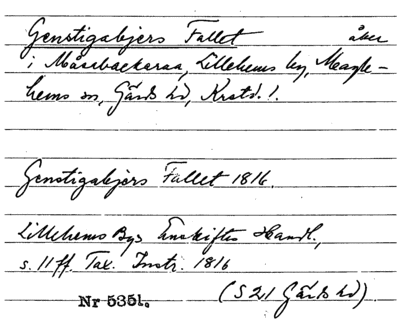 Genstigabjers Fallet åker
i Måsabackarna, Lillehems by, Magle-
hems sn, Gärds hd, Krstd. l.
Genstigabjörs Fallet 1816.
Lillehems Bys Enskiftes Handl.,
s. 11 ff. Tax. Instr. 1816
Nr 5351. (S 21 Gärds hd)